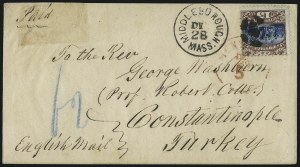 Paid
MIDDLEBOROUGH
DE
28
MASS.
To the Rev
George Washburn
(Prof. Robert College)
Constantinople
English Mail
Turkey